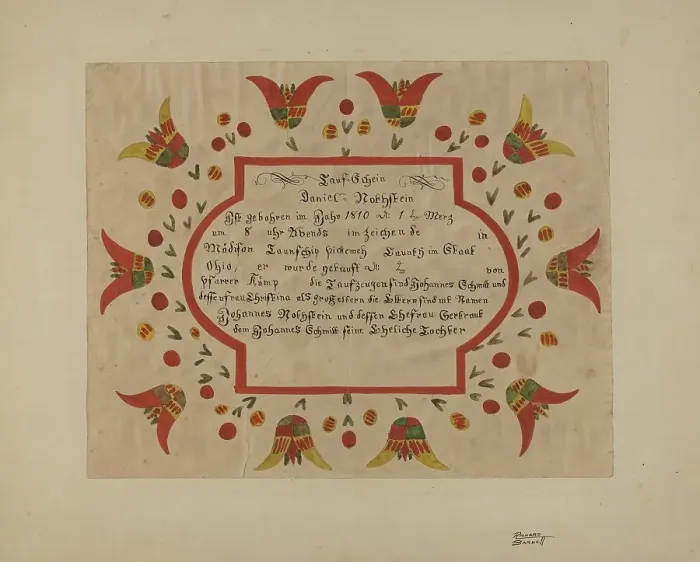 Tauf-Schein
Daniel Nothstein
Ist gebohren im Jahr 1810 d 1 Merz
um 8 uhr Abends im zeichen de in
Madison Taunschip Pickeweh Caunty im Staat
Ohio, er wurde getauft d von
Pfarrer Kämp die Taufzeugen sind Johannes Schmitt und
dessen frau Christina als grosseltern die Eltern sind mit Namen
Johannes Nothstein und dessen Ehefrau Gertraut
dem Johannes Schmitt seine Eheliche Tochter
Richard